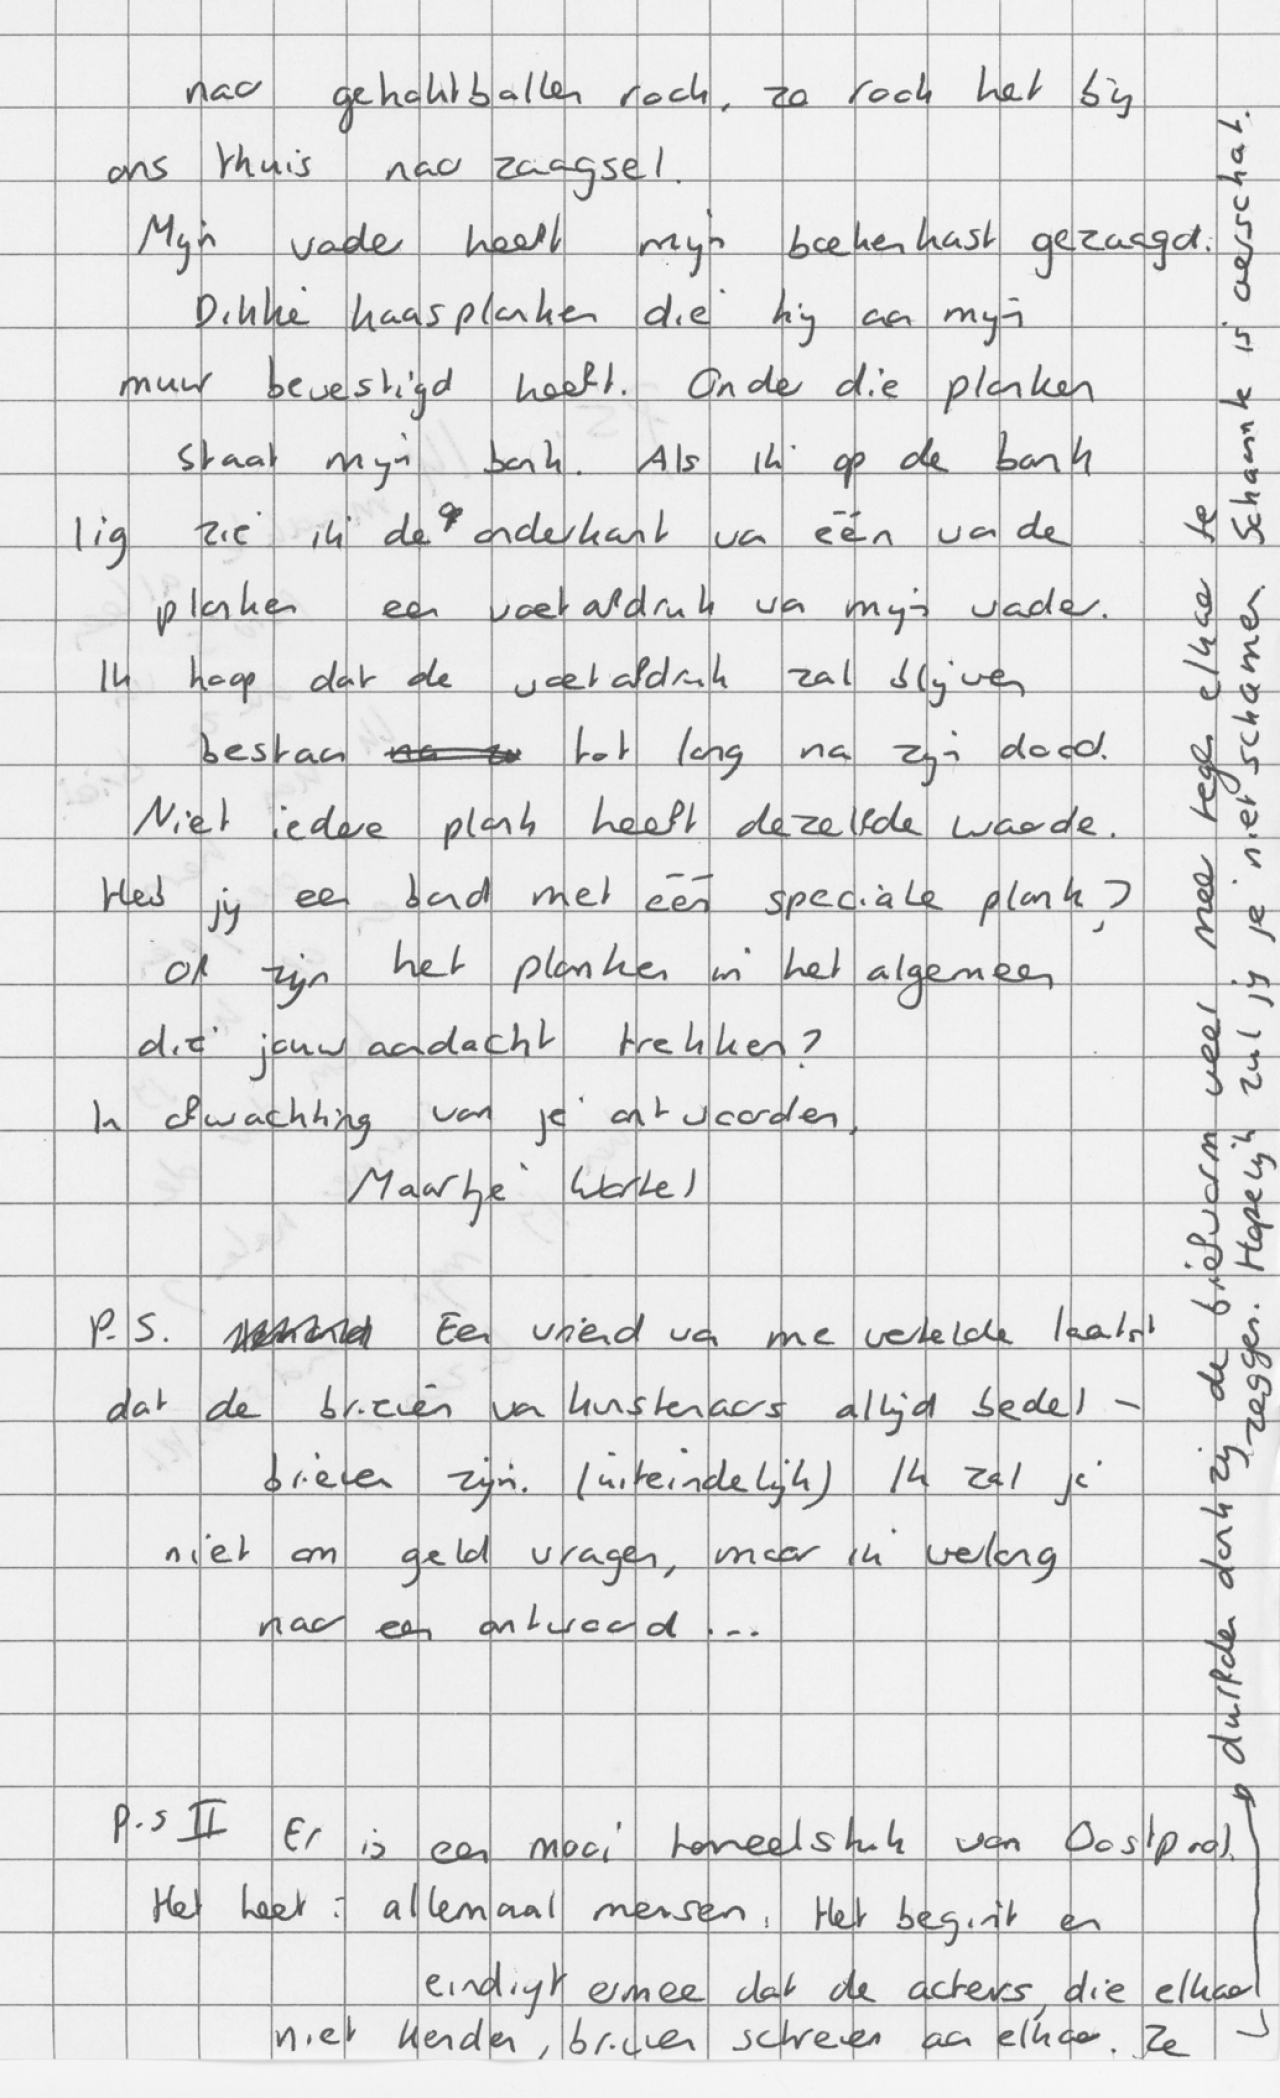 naar gehaktballen rook, zo rook het bij
ons thuis naar zaagsel.
Mijn vader heeft mijn boekenkast gezaagd.
Dikke kaasplanken die hij aan mijn
muur bevestigd heeft. Onder die planken
staat mijn bank. Als ik op de bank
lig zie ik de onderkant van één van de
planken een voetafdruk van mijn vader.
Ik hoop dat de voetafdruk zal blijven
bestaan tot lang na zijn dood.
Niet iedere plank heeft dezelfde waarde.
Heb jij een band met één speciale plank?
Of zijn het planken in het algemeen
die jouw aandacht trekken?
In afwachting van je antwoorden,
Maartje Wortel
P.S. Een vriend van me vertelde laatst
dat de brieven van kunstenaars altijd bedel-
brieven zijn. (uiteindelijk) Ik zal je
niet om geld vragen, maar ik verlang
naar een antwoord...
P.S II Er is een mooi toneelstuk van Oostpool.
Het heet: allemaal mensen. Het begint en
eindigt ermee dat de acteurs, die elkaar
niet kenden, brieven schreven aan elkaar. Ze
durfden dankzij de briefvorm veel meer tegen elkaar te
zeggen. Hopelijk zul jij je niet schamen. Schaamte is overschat.